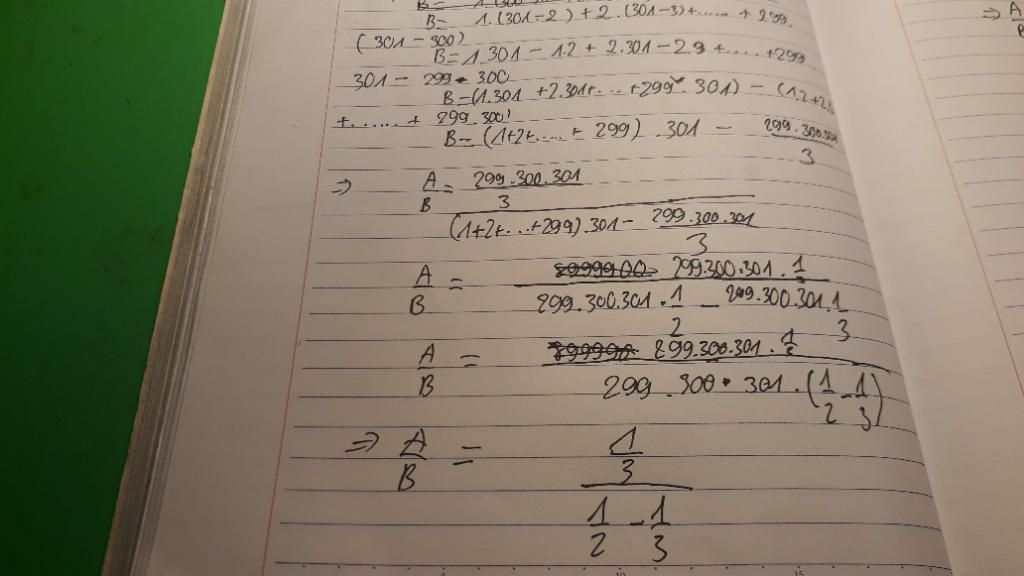 B= 1.(300
B= 1.(301-2) + 2.(301-3)+..... + 299.
(301-300)
B= 1.301 - 1.2 + 2.301 - 2.3 + ..... + 299.
301 - 299.300
B=(1.301 + 2.301+ ... +299.301) - (1.2+2.3
+...... + 299.300)
B= (1+2+..... + 299) . 301 - 299.300.301
3
=> A/B = 299.300.301
3
(1+2+...+299).301 - 299.300.301
3
A/B = 299.300.301 . 1/3
299.300.301 . 1/2 - 299.300.301.1/3
A/B = 299.300.301 . 1/3
299 . 300 . 301 . (1/2 - 1/3)
=> A/B = 1/3
1/2 - 1/3
=> A
B